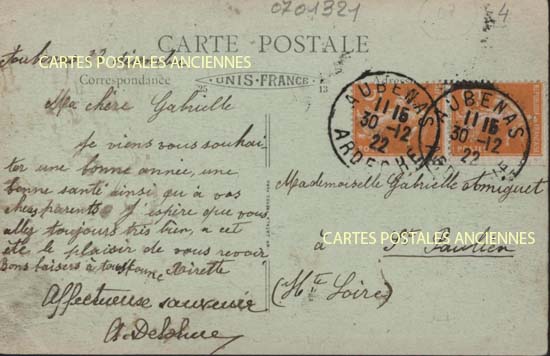 0701321
4
CARTE POSTALE
CARTES POSTALES ANCIENNES
Correspondance
UNIS-FRANCE
25
13
AUBENAS
11 15
30 -12
22
ARDECHE
AUBENAS
11 15
30 -12
22
Ma chère Gabrielle
Je viens vous souhai-
ter une bonne année, une
bonne santé ainsi qu'à vos
chers parents. J'espère que vous
allez toujours très bien, à cet
été le plaisir de vous revoir
Bons baisers à tous
Affectueux souvenir
Mademoiselle Gabrielle Amiguet
CARTES POSTALES ANCIENNES
à St Paulien
(Hte Loire)